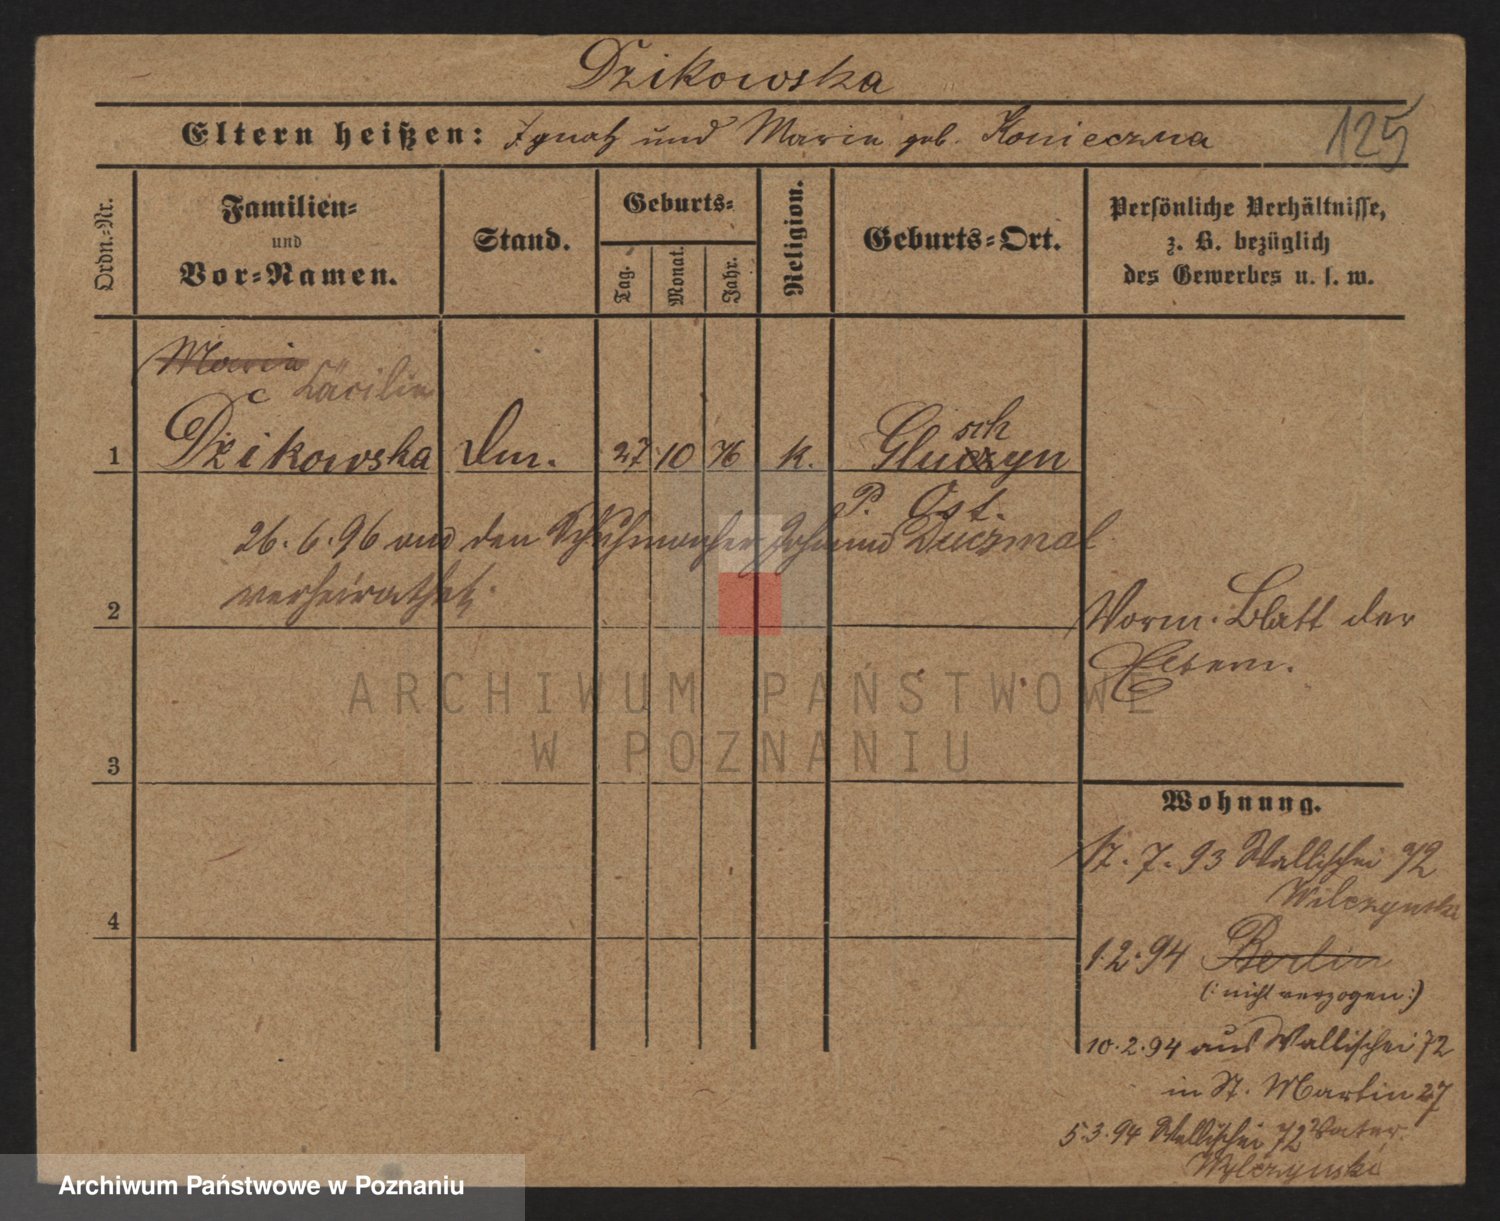 Dzikowska
Eltern heißen: Ignatz und Maria geb. Konieczna
125
Ordn.-Nr.
Familien-
und
Vor-Namen.
Stand.
Geburts-
Tag.
Monat.
Jahr.
Religion.
Geburts-Ort.
Persönliche Verhältnisse,
z. B. bezüglich
des Gewerbes u. s. w.
Maria
c Cäcilie
1 Dzikowska Dm. 27 10 76 k. Gluczyn
sch
P. Ost.
26. 6. 96 den Schuhmacher Johann Duczmal
verheirathet.
2
Vorm. Blatt der
Eltern.
ARCHIWUM PAŃSTWOWE
W POZNANIU
3
Wohnung.
7. 93 Wallischei 72
Wilczynska
4
1. 2. 94 Berlin
(: nicht verzogen :)
10. 2. 94 aus Wallischei 72
in St. Martin 27
5. 3. 94 Wallischei 72 Vater.
Wylczynski
Archiwum Państwowe w Poznaniu